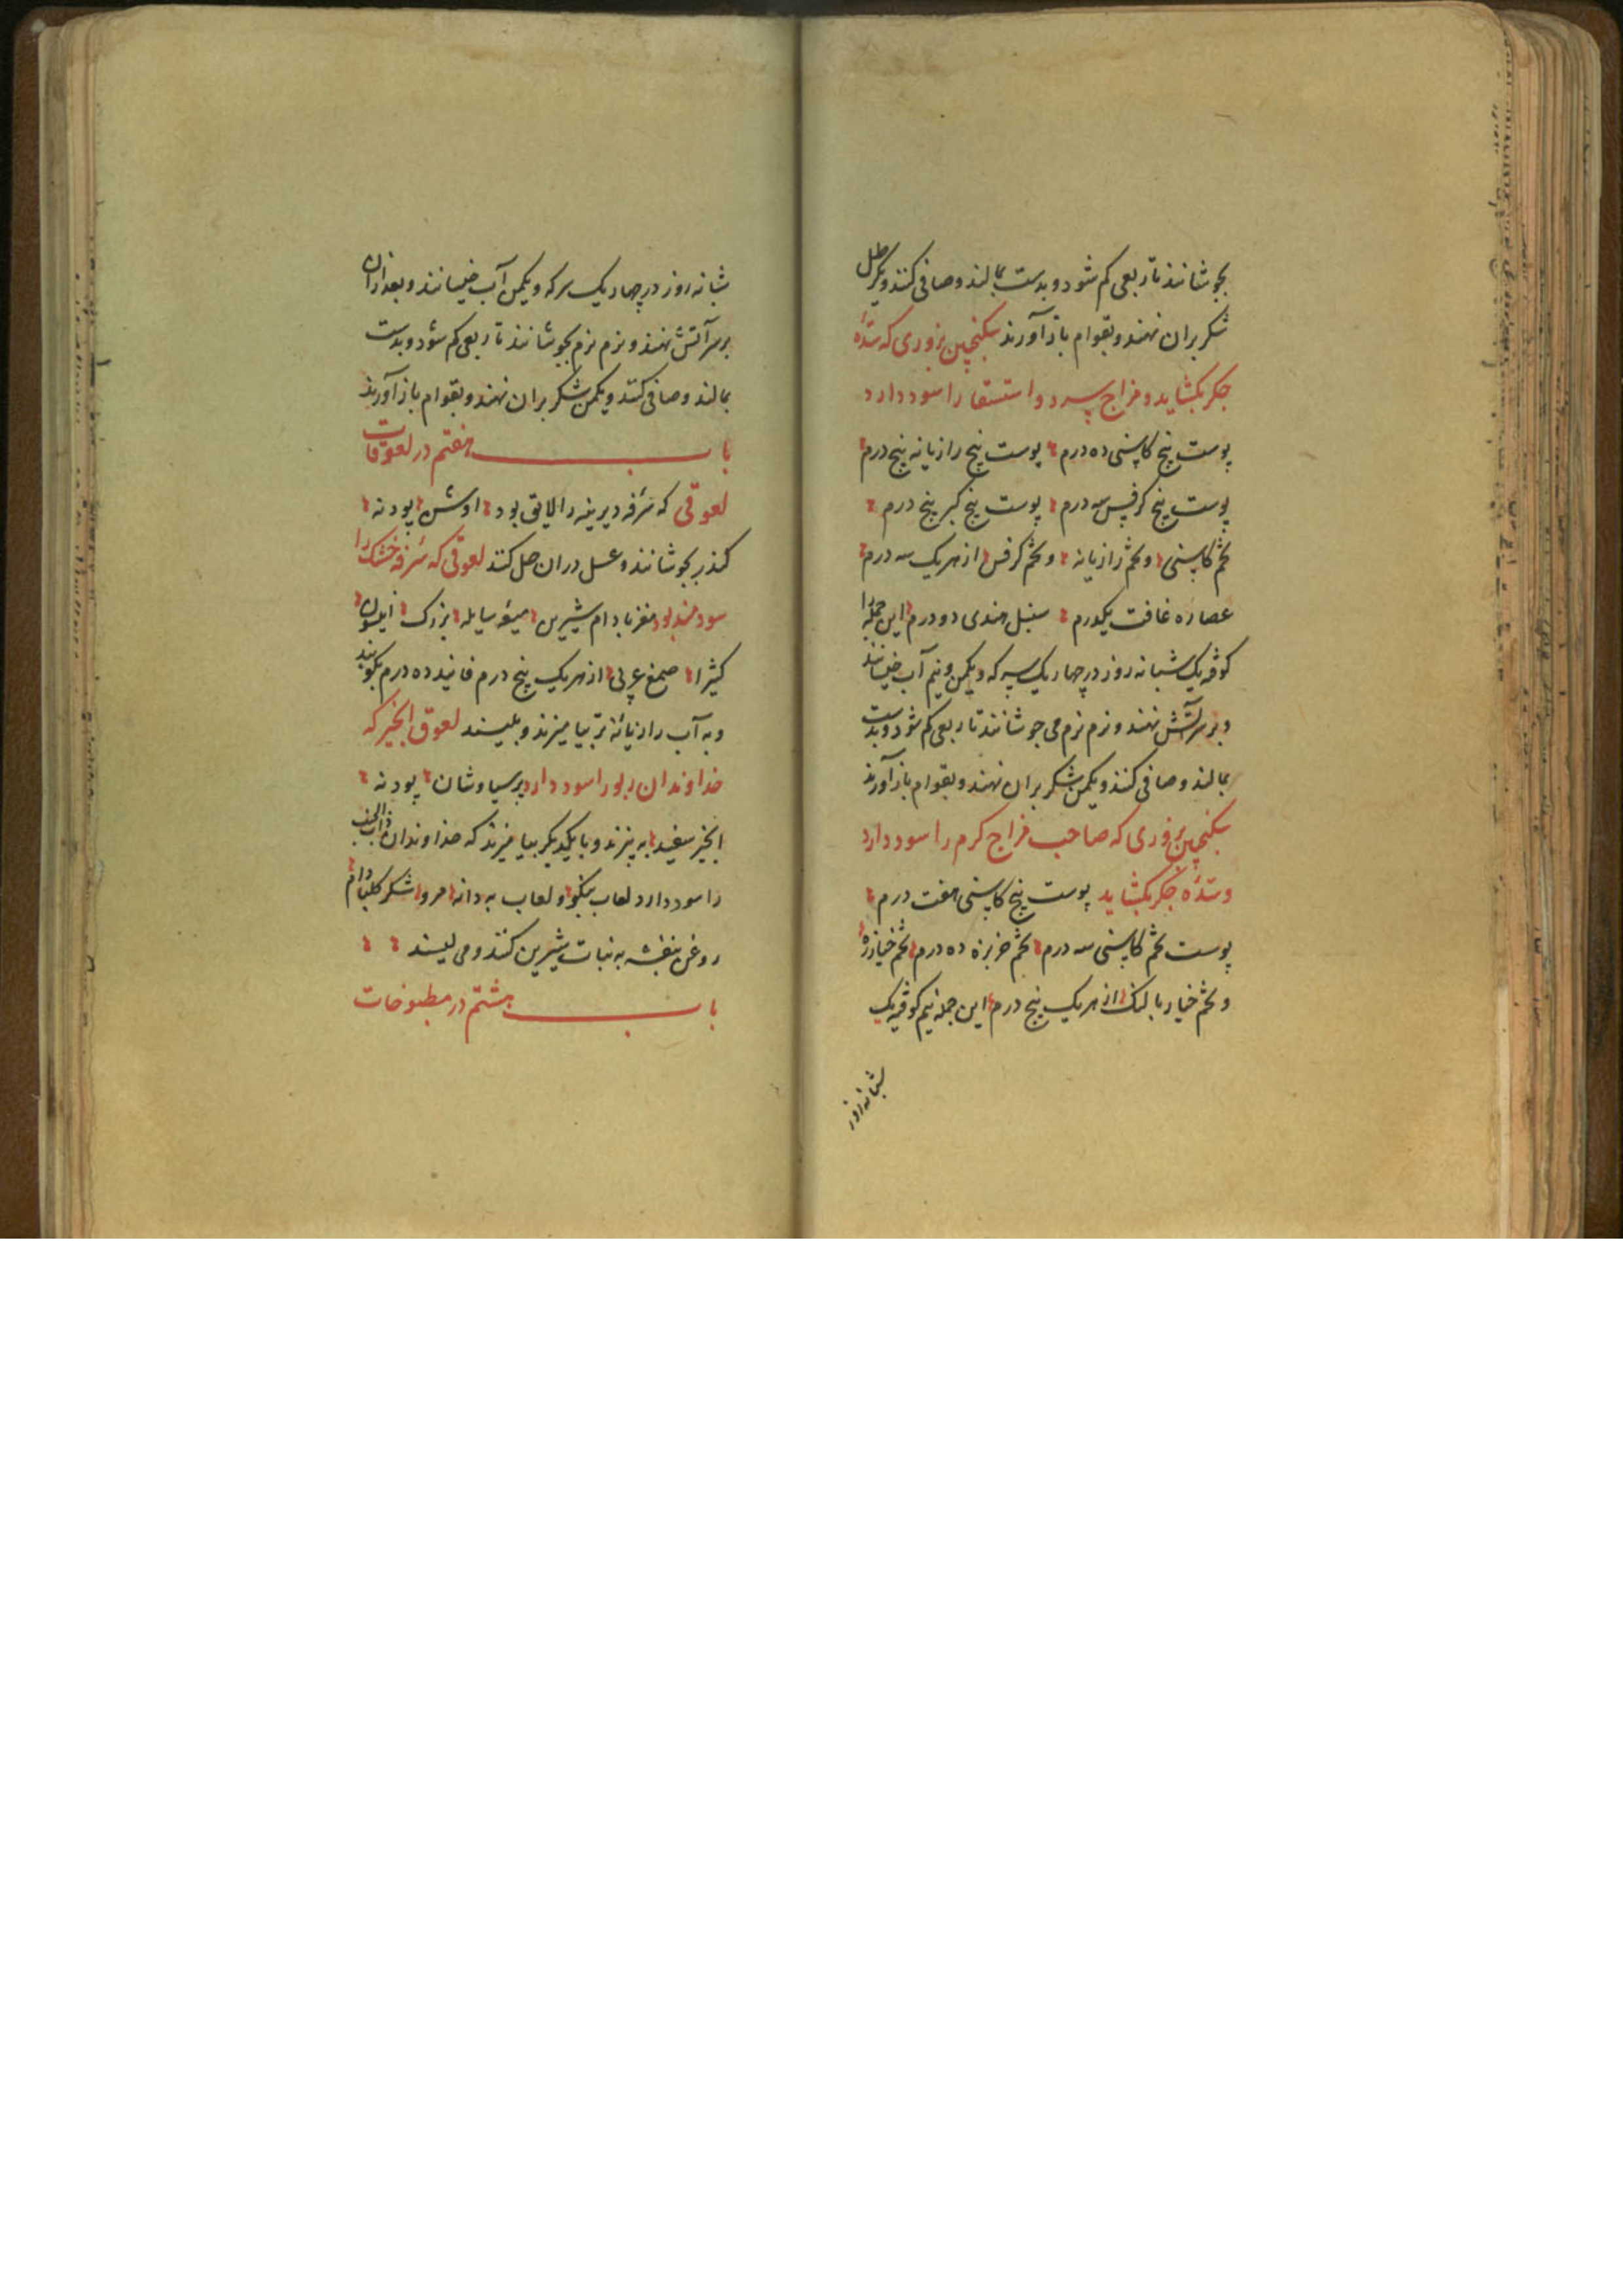 بجوشانند تا ربعی کم شود و بدست بمالند و صافی کنند و یکرطل
شکر بران نهند و بقوام باز آورند سکنجبین بزوری که سدّهٔ
جکر بکشاید و مزاج سرد و استسقا را سود دارد
پوست بیخ کاسنی ده درم پوست بیخ رازیانه پنج درم
پوست بیخ کرفس سه درم پوست بیخ کبر پنج درم
تخم کاسنی و تخم رازیانه و تخم کرفس از هر یک سه درم
عصاره غافت یکدرم سنبل هندی دو درم این جمله را
کوفته یک شبانه روز در چهار یک سرکه و یکمن و نیم آب خیسانند
و بر سر آتش نهند و نرم نرم می جوشانند تا ربعی کم شود و بدست
بمالند و صافی کنند و یکمن شکر بران نهند و بقوام باز آورند
سکنجبین بزوری که صاحب مزاج کرم را سود دارد
و سدّهٔ جکر بکشاید پوست بیخ کاسنی هفت درم
پوست تخم کاسنی سه درم تخم خربزه ده درم تخم خیارزه
و تخم خیار بالنک از هر یک پنج درم این جمله نیم کوفته یک
شبانه روز
شبانه روز در چهار یک سرکه و یکمن آب خیسانند و بعد ازان
بر سر آتش نهند و نرم نرم بجوشانند تا ربعی کم شود و بدست
بمالند و صافی کنند و یکمن شکر بران نهند و بقوام باز آورند
باب هفتم در لعوقات
لعوقی که سرفه دیرینه را لایق بود اوشن پودنه
کندر بجوشانند و عسل دران حل کنند لعوقی که سرفه خشک را
سودمند بود مغز بادام شیرین میعه سایله بزرک انیسون
کثیرا صمغ عربی از هر یک پنج درم فانید ده درم بکوبند
و به آب رازیانهٔ تر بیامیزند و بلیسند لعوق انجیر که
خداوندان ربو را سود دارد پرسیاوشان پودنه
انجیر سفید به پزند و با یکدیکر بیامیزند که خداوندان ذات الجنب
را سود دارد لعاب بنکو و لعاب به دانه مرو شکر بادام
روغن بنفشه به نبات شیرین کنند و می لیسند
باب هشتم در مطبوخات